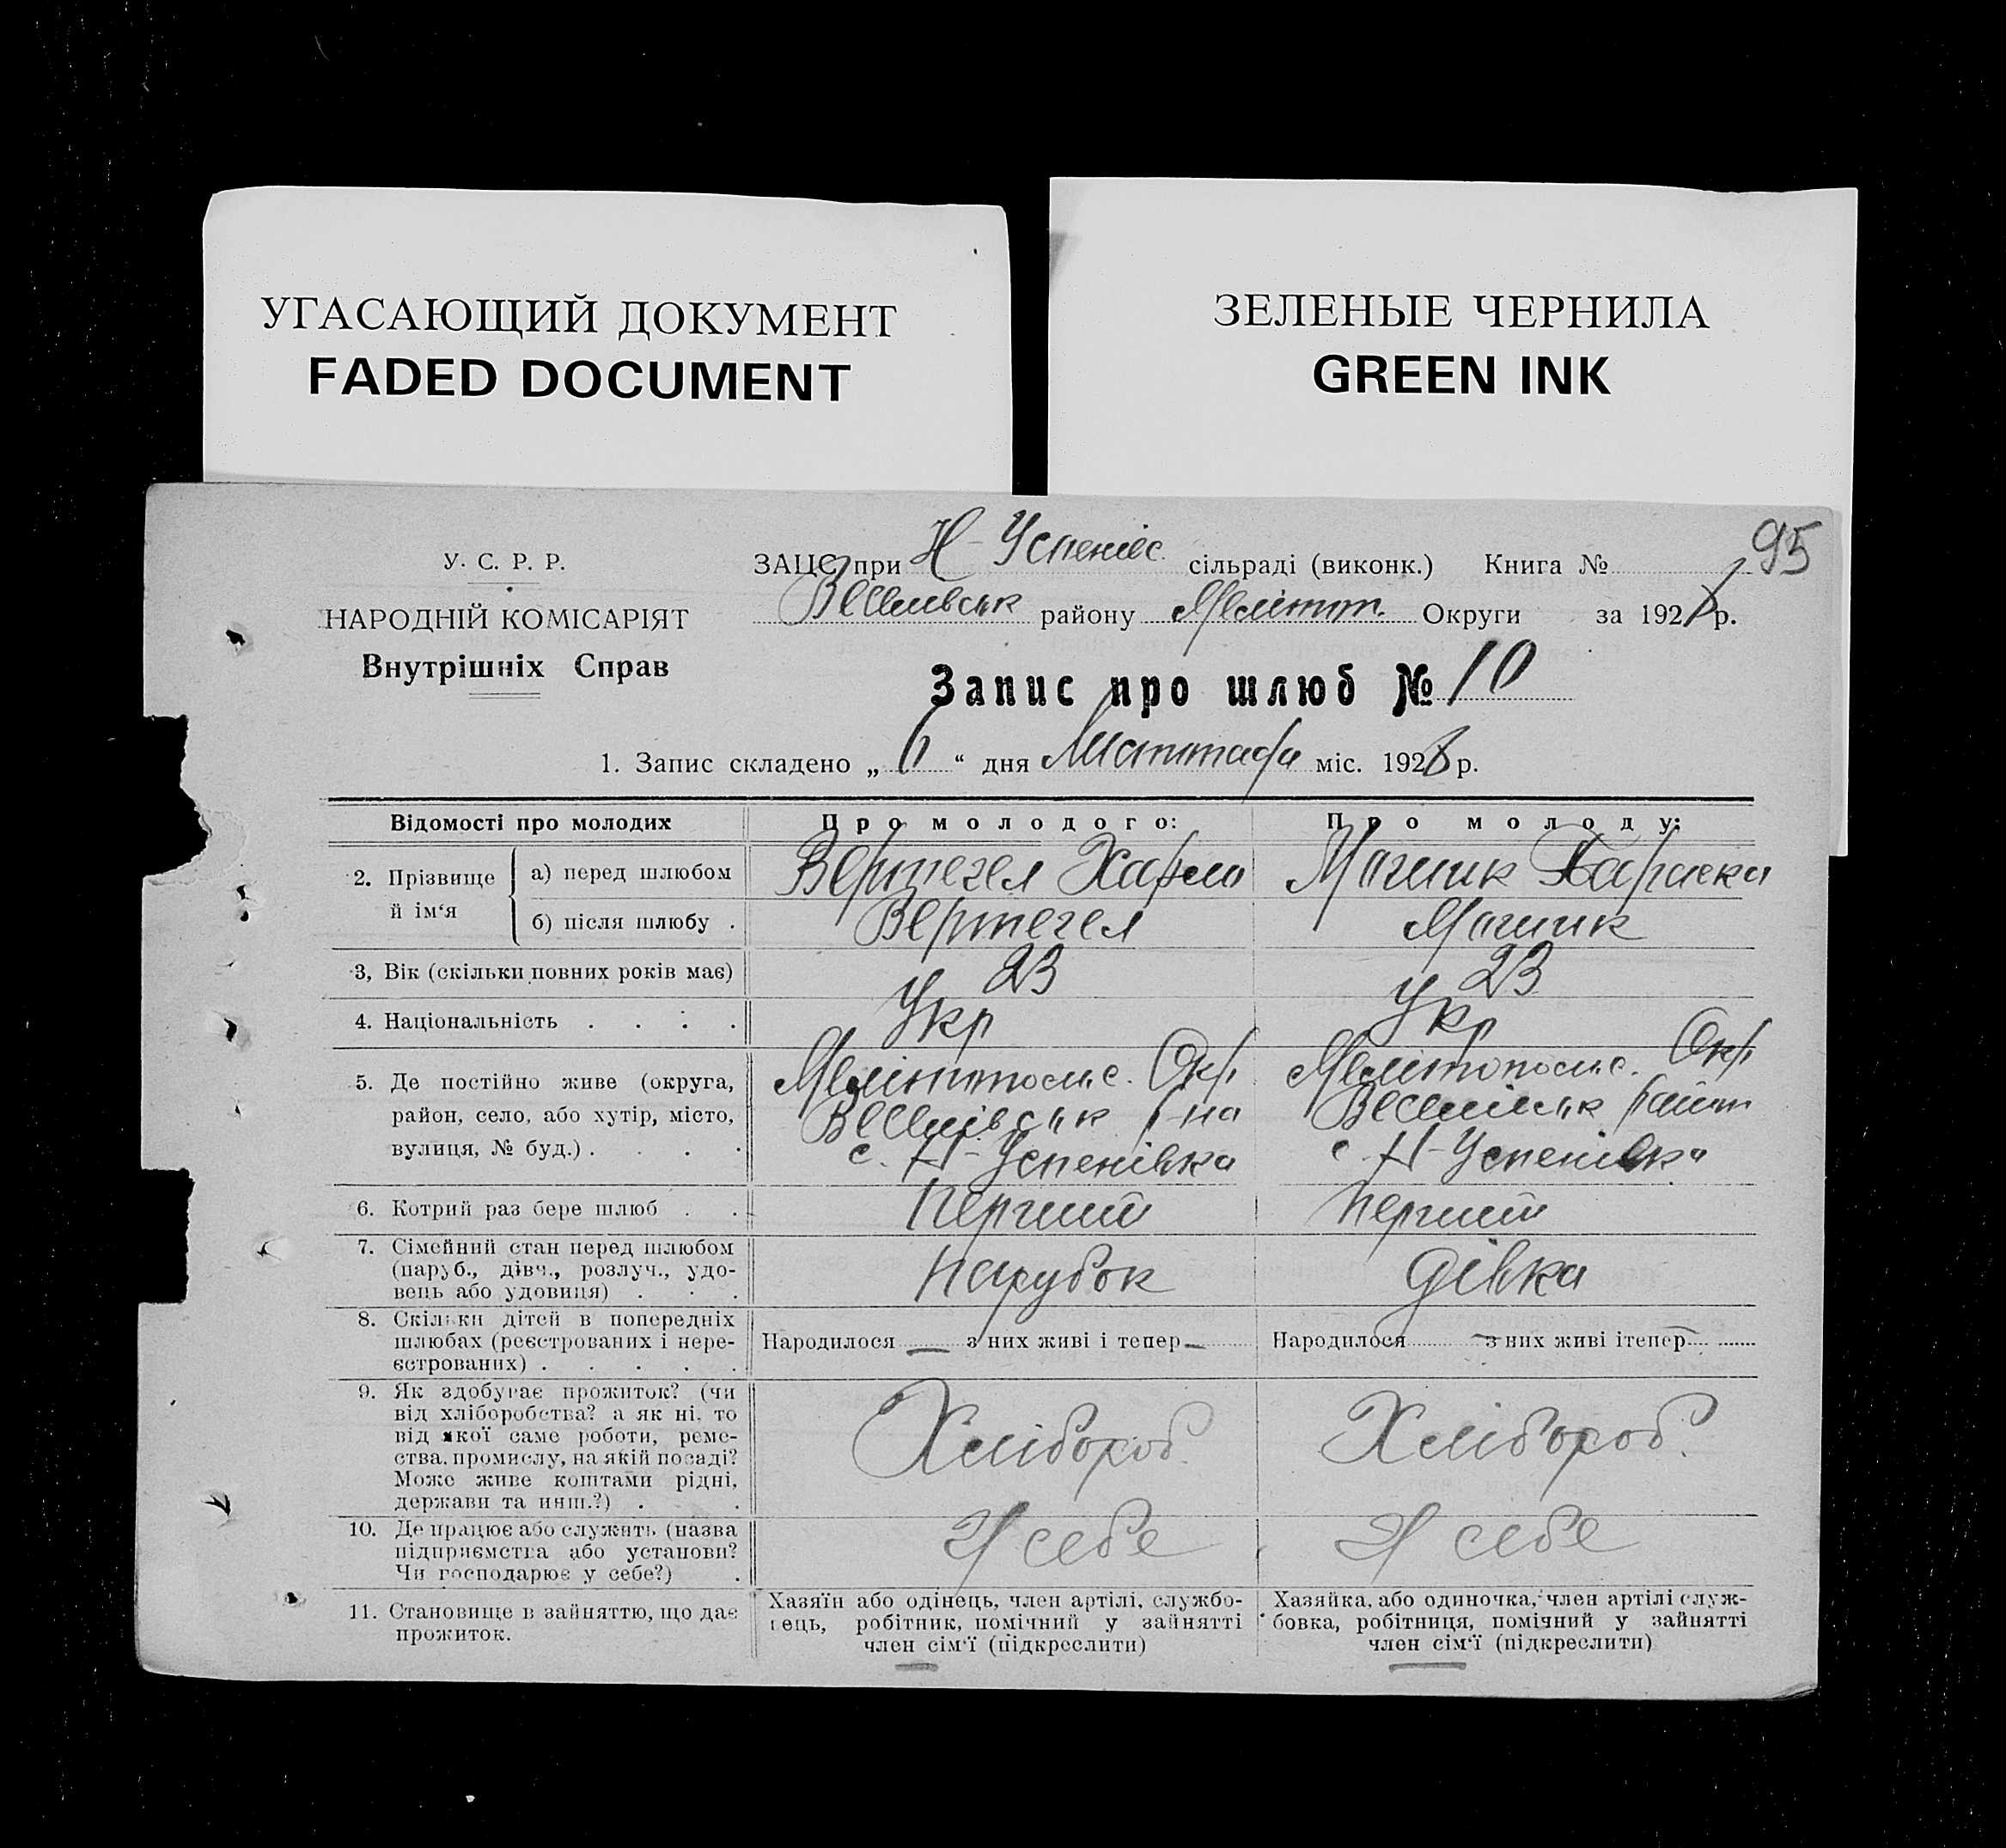 УГАСАЮЩИЙ ДОКУМЕНТ
FADED DOCUMENT
ЗЕЛЕНЫЕ ЧЕРНИЛА
GREEN INK
95
У. С. Р. Р.
НАРОДНІЙ КОМІСАРІЯТ
Внутрішніх Справ
ЗАЦС при Н-Успенівс. сільраді (виконк.) Книга №
Веселивськ району Меліт. Округи за 192 р.
Запис про шлюб № 10
1. Запис складено „ 6 “ дня міс. 1928 р.
Відомості про молодих
Про молодого:
Про молоду:
2. Прізвище й ім‘я
а) перед шлюбом
Вертегел Харло
Магник Параска
б) після шлюбу .
Вертегел
Магник
3, Вік (скільки повних років має)
23
23
4. Національність . . . .
Укр
Укр
5. Де постійно живе (округа,
район, село, або хутір, місто,
вулиця, № буд.) . . . .
Мелітопольс. Окр
Веселівськ р на
с. Н-Успенівка
Мелітопольс. Окр
Веселівськ район
с. Н-Успенівка
6. Котрий раз бере шлюб . .
Перший
Перший
7. Сімейний стан перед шлюбом
(паруб., дівч., розлуч., удо-
вець або удовиця) . . .
Парубок
дівка
8. Скільки дітей в попередніх
шлюбах (реєстрованих і нере-
єстрованих) . . . . .
Народилося — з них живі і тепер —
Народилося — з них живі ітепер
9. Як здобуває прожиток? (чи
від хліборобства? а як ні, то
від якої саме роботи, реме-
ства, промислу, на якій посаді?
Може живе коштами рідні,
держави та инш.?) . .
Хлібороб.
Хлібороб.
10. Де працює або служить (назва
підприємства або установи?
Чи господарює у себе?) .
У себе
У себе
11. Становище в зайняттю, що дає
прожиток.
Хазяїн або одінець, член артілі, службо-
вець, робітник, помічний у зайнятті
член сім‘ї (підкреслити)
Хазяйка, або одиночка, член артілі служ-
бовка, робітниця, помічний у зайнятті
член сім‘ї (підкреслити)